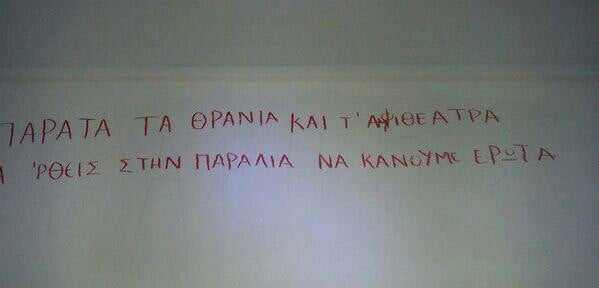 ΠΑΡΑΤΑ ΤΑ ΘΡΑΝΙΑ ΚΑΙ Τ' ΑΜΦΙΘΕΑΤΡΑ
'ΡΘΕΙΣ ΣΤΗΝ ΠΑΡΑΛΙΑ ΝΑ ΚΑΝΟΥΜΕ ΕΡΩΤΑ